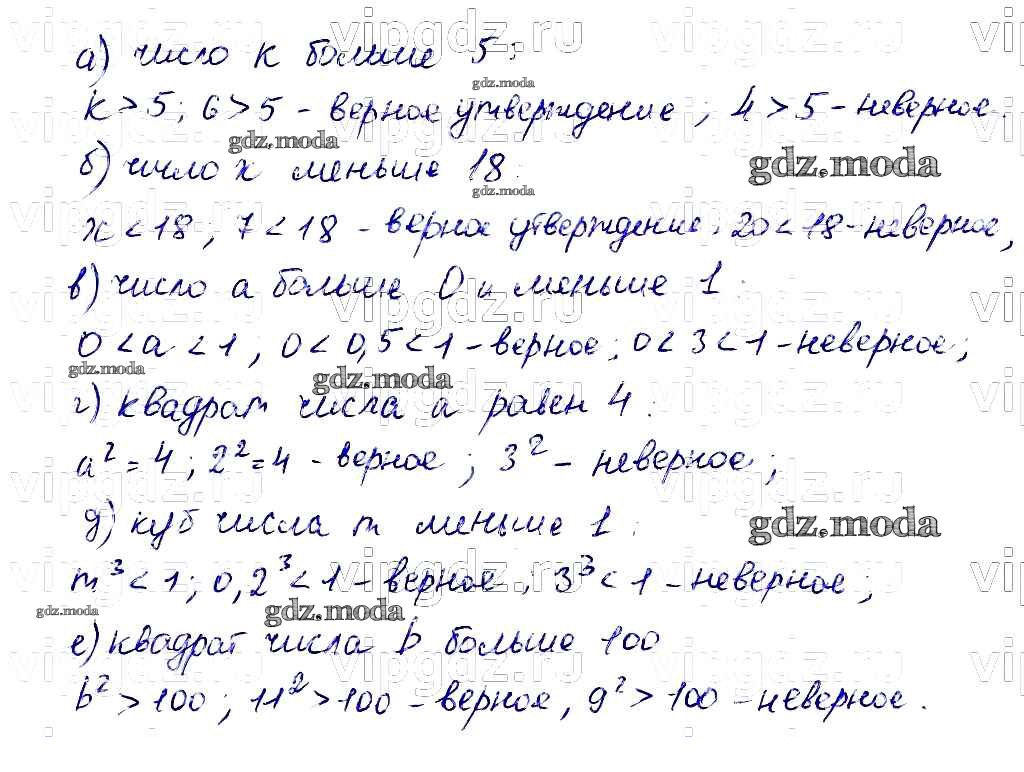 а) число k больше 5:
k > 5; 6 > 5 - верное утверждение; 4 > 5 - неверное.
б) число x меньше 18:
x < 18; 7 < 18 - верное утверждение; 20 < 18 - неверное,
в) число a больше 0 и меньше 1:
0 < a < 1; 0 < 0,5 < 1 - верное; 0 < 3 < 1 - неверное;
г) квадрат числа a равен 4:
a² = 4; 2² = 4 - верное; 3² - неверное;
д) куб числа m меньше 1:
m³ < 1; 0,2³ < 1 - верное; 3³ < 1 - неверное;
е) квадрат числа b больше 100
b² > 100; 11² > 100 - верное, 9² > 100 - неверное.
vipgdz.ru
gdz.moda